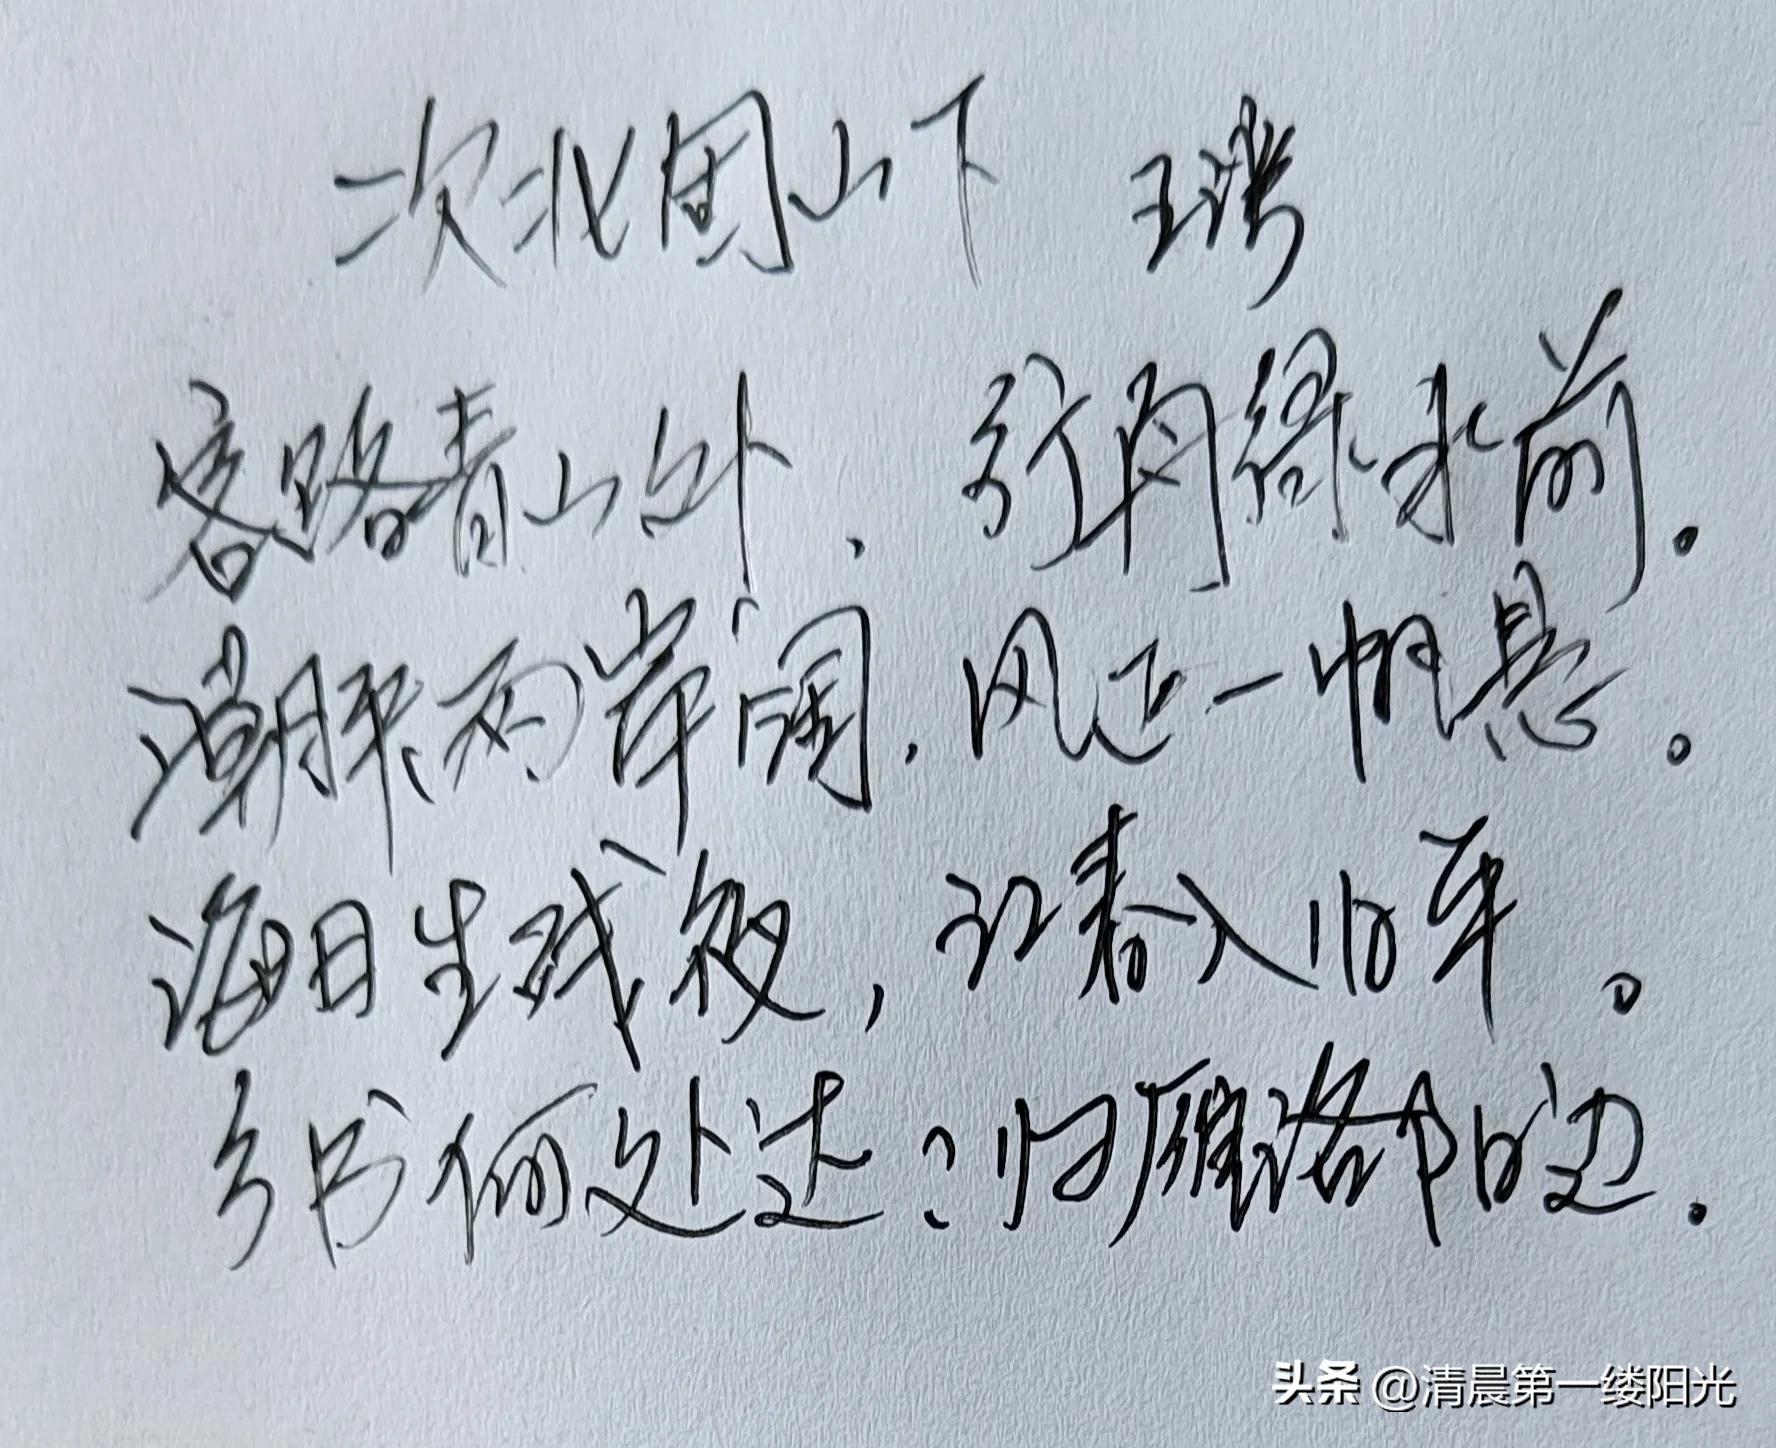 次北固山下 王湾
客路青山外，行舟绿水前。
潮平两岸阔，风正一帆悬。
海日生残夜，江春入旧年。
乡书何处达？归雁洛阳边。
头条 @清晨第一缕阳光